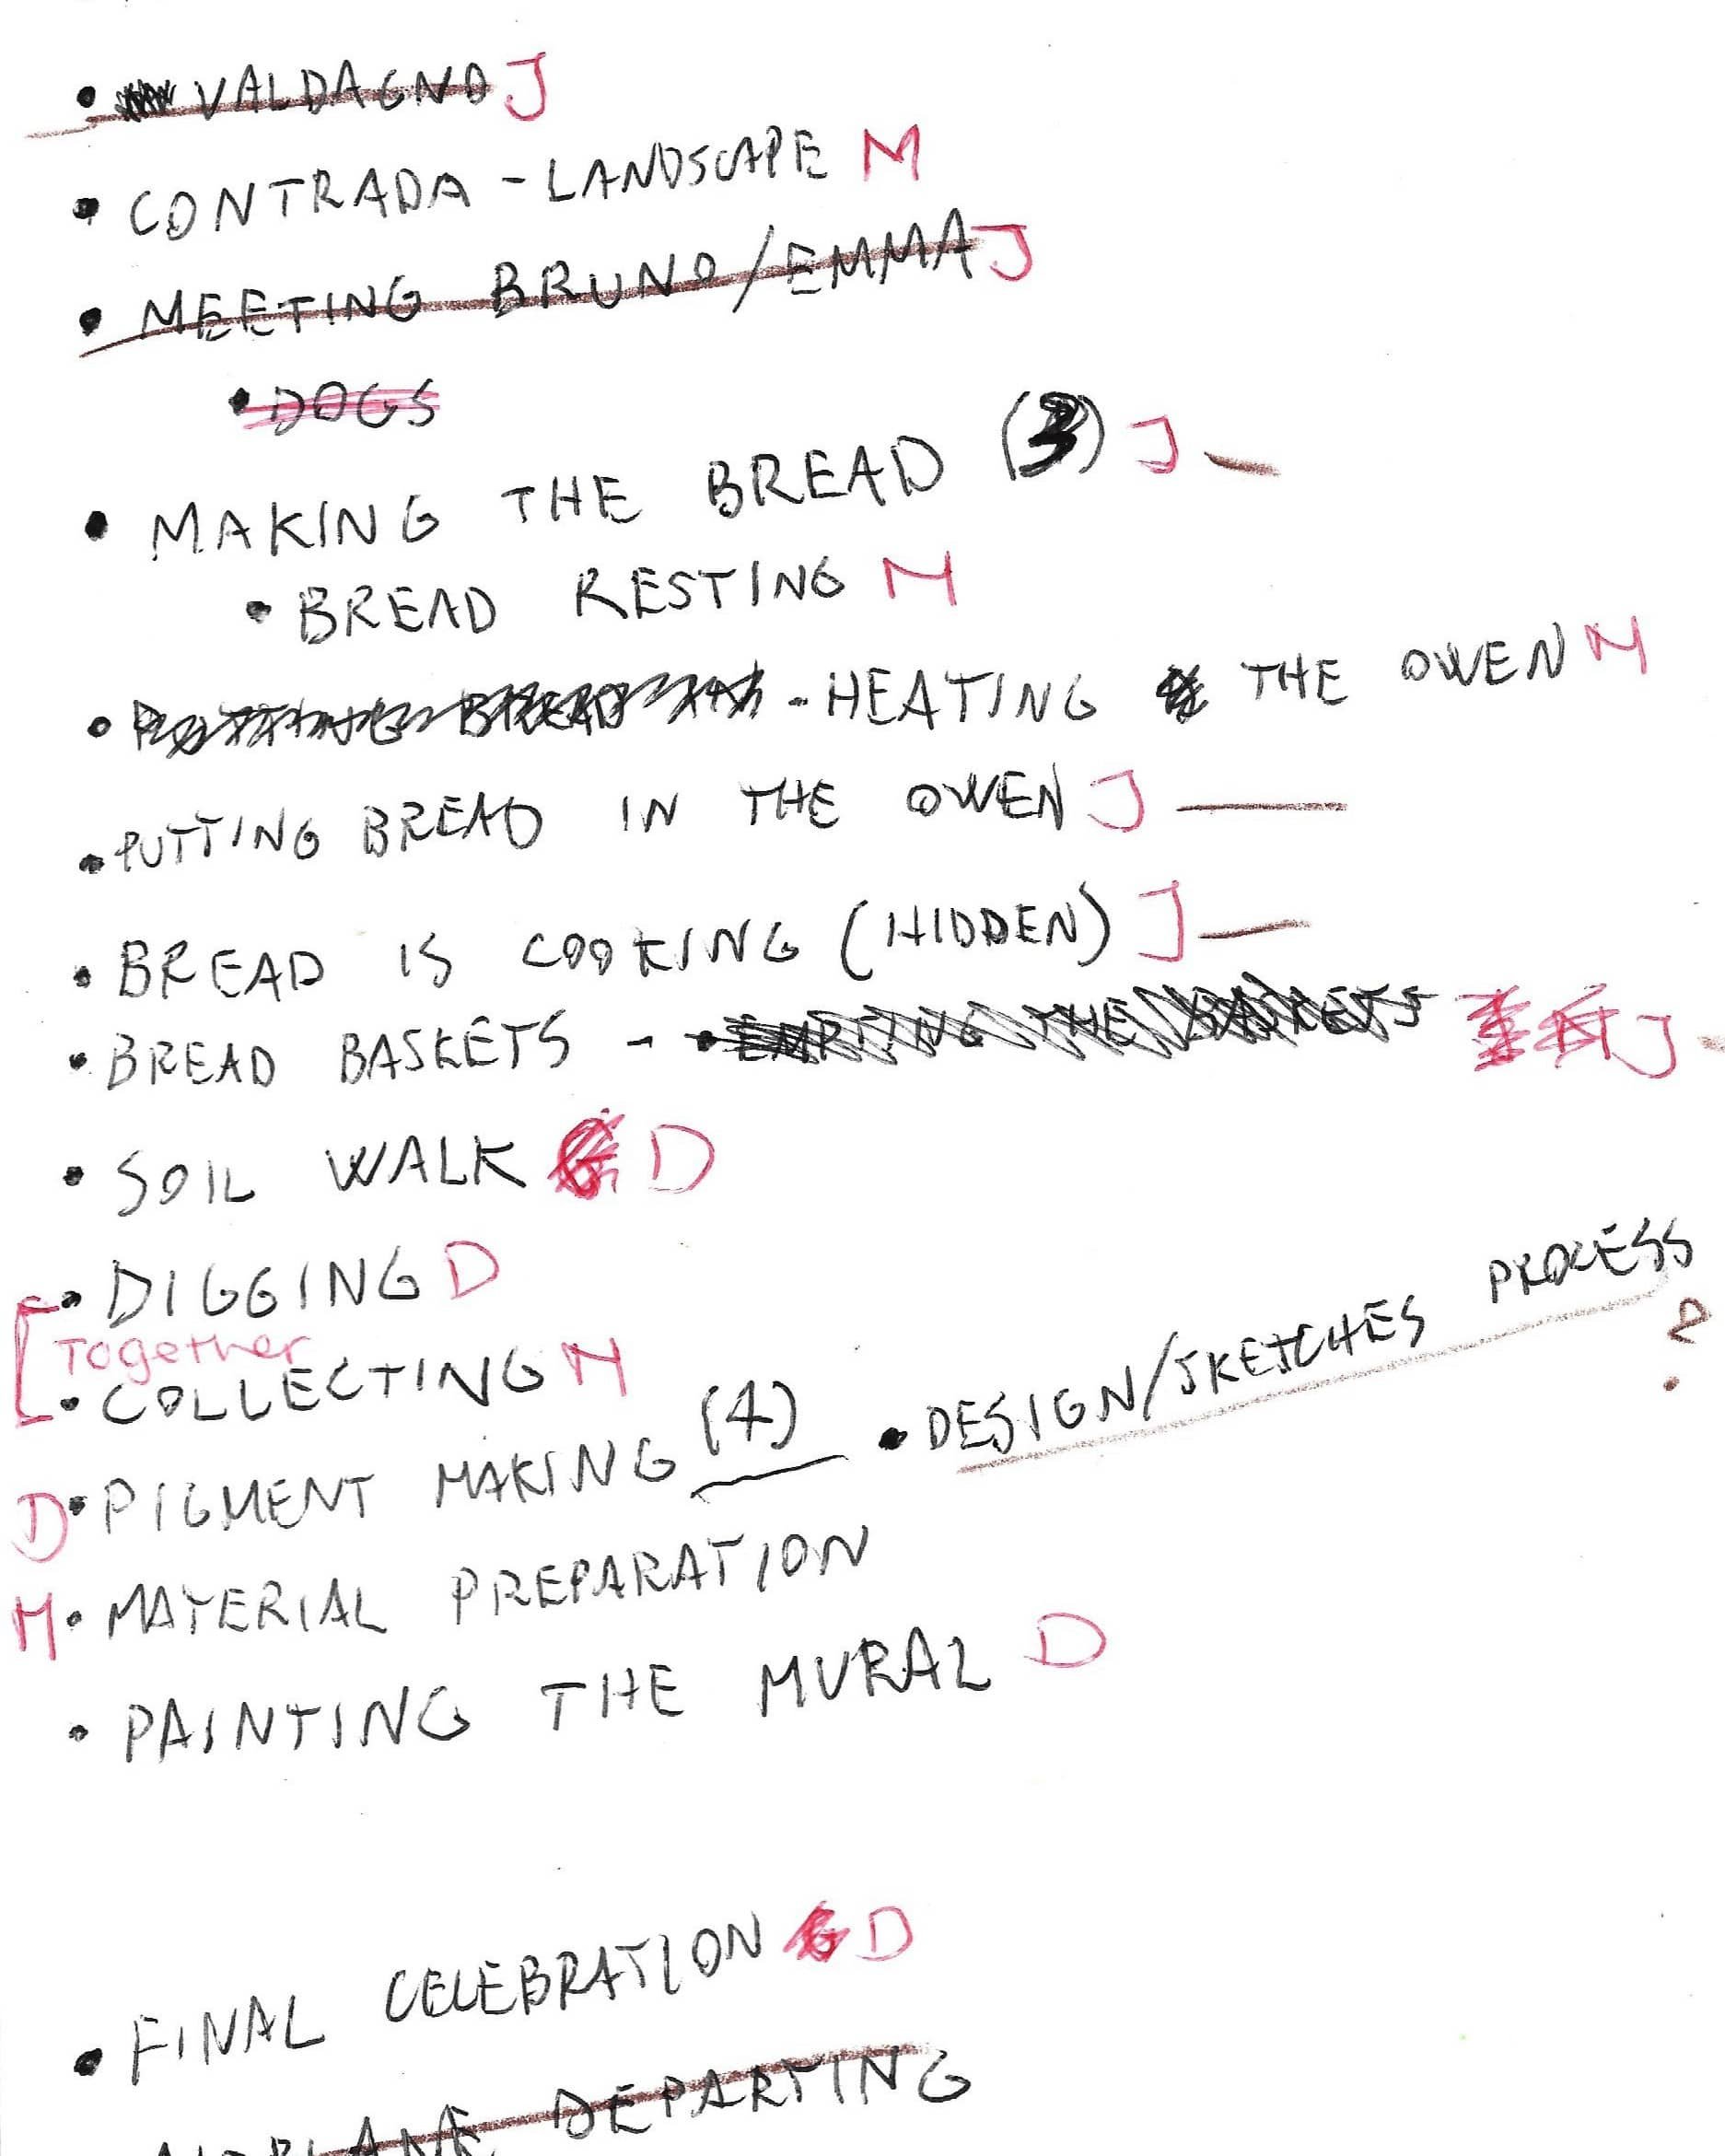 • VALDAGNO J
• CONTRADA - LANDSCAPE M
• MEETING BRUNO/EMMA J
• DOGS
• MAKING THE BREAD (3) J —
• BREAD RESTING M
• PUTTING BREAD - HEATING THE OWEN M
• PUTTING BREAD IN THE OWEN J —
• BREAD IS COOKING (HIDDEN) J —
• BREAD BASKETS - • EMPTING THE BASKETS J -
• SOIL WALK D
• DIGGING D
Together
• COLLECTING M
D • PIGMENT MAKING (4) • DESIGN/SKETCHES PROCESS ?
M • MATERIAL PREPARATION
• PAINTING THE MURAL D
• FINAL CELEBRATION D
AIRPLANE DEPARTING